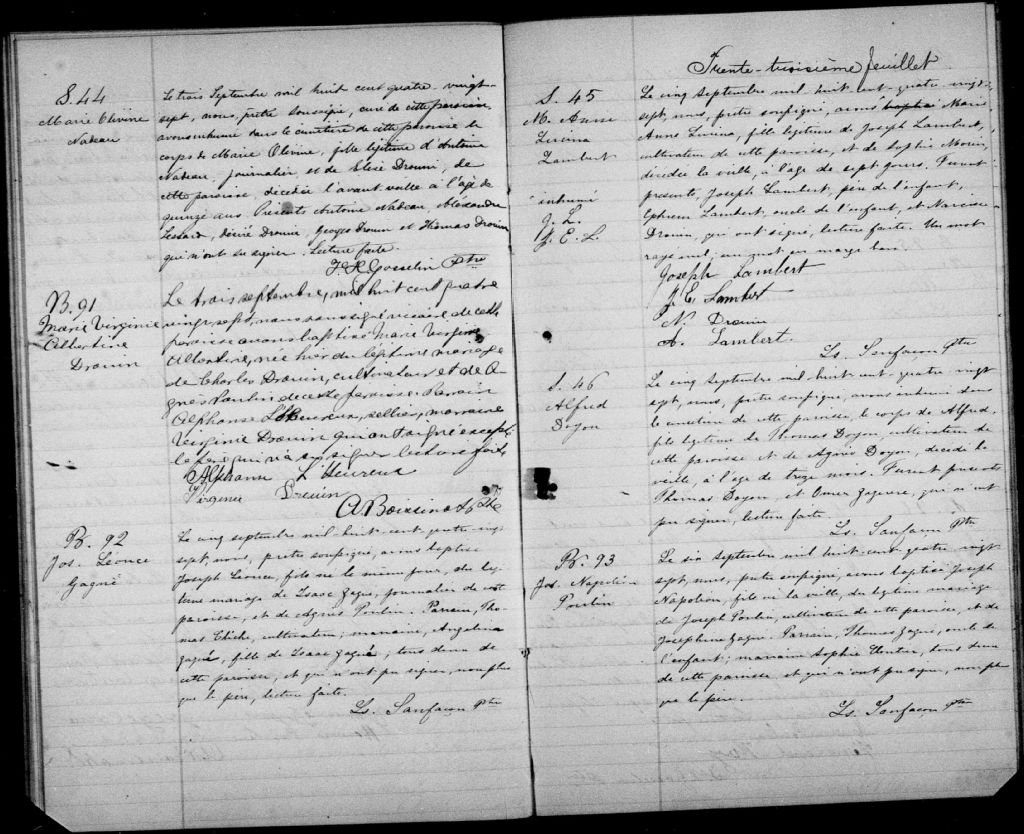 S. 44
Marie Olivine
Nadeau
Le trois Septembre mil huit cent quatre vingt-
sept, nous, prêtre soussigné, curé de cette paroisse,
avons inhumé dans le cimetière de cette paroisse le
corps de Marie Olivine, fille légitime d'Antoine
Nadeau, journalier et de Elise Drouin, de
cette paroisse, décédée l'avant veille à l'âge de
quinze ans. Présents Antoine Nadeau, Alexandre
Lessard, Désiré Drouin, Georges Drouin et Thomas Drouin
qui n'ont su signer. Lecture faite.
Gosselin Ptre
B. 91
Marie Virginie
Albertine
Drouin
Le trois septembre, mil huit cent quatre
vingt sept, nous soussigné vicaire de cette
paroisse avons baptisé Marie Virginie
Albertine, née hier du légitime mariage
de Charles Drouin, cultivateur et de A-
gnès Poulin de cette paroisse. Parrain
Alphonse L'Heureux, sellier, marraine
Virginie Drouin qui ont signé excepté
le père qui n'a su signer lecture faite
Alphonse L'Heureux
Virginie Drouin
A Boissinot Ptre
B. 92
Jos. Léonce
Gagné
Le cinq septembre mil huit-cent-quatre vingt
sept, nous, prêtre soussigné, avons baptisé
Joseph Léonce, fils né le même jour, du légi-
time mariage de Isaac Gagné, journalier de cette
paroisse, et de Agnès Poulin. Parrain, Tho-
mas cultivateur; marraine, Angelina
Gagné, fille de Isaac Gagné; tous deux de
cette paroisse, et qui n'ont pu signer, non plus
que le père, lecture faite.
Ls. Sanfaçon Ptre
Trente-troisième feuillet
S. 45
M. Anne
Lumina
Lambert
inhumé
J. L.
J. E. L.
Le cinq septembre mil huit-cent-quatre vingt
sept, nous, prêtre soussigné, avons baptisé Marie
Anne fille légitime de Joseph Lambert,
cultivateur de cette paroisse, et de Sophie Morin,
décédée la veille, à l'âge de sept jours. Furent
présents, Joseph Lambert, père de l'enfant,
Ephrem Lambert, oncle de l'enfant, et Narcisse
Drouin, qui ont signé, lecture faite. Un mot
rayé nul, un mot en marge bon.
Joseph Lambert
J. E. Lambert
N. Drouin
A. Lambert.
Ls. Sanfaçon Ptre
S. 46
Alfred
Doyon
Le cinq septembre mil-huit-cent-quatre vingt
sept, nous, prêtre soussigné, avons inhumé dans
le cimetière de cette paroisse, le corps de Alfred,
fils légitime de Thomas Doyon, cultivateur de
cette paroisse et de Agnès Doyon, décédé la
veille, à l'âge de treize mois. Furent présents
Thomas Doyon, et Omer qui n'ont
pu signer, lecture faite.
Ls. Sanfaçon Ptre
B. 93
Jos. Napoléon
Poulin
Le six septembre mil huit-cent-quatre vingt
sept, nous, prêtre soussigné, avons baptisé Joseph
Napoléon, fils né la veille, du légitime mariage
de Joseph Poulin, cultivateur de cette paroisse, et de
Josephine Gagné. Parrain, Thomas Gagné, oncle de
l'enfant; marraine Sophie Cloutier, tous deux
de cette paroisse et qui n'ont pu signer, non plus
que le père.
Ls. Sanfaçon Ptre